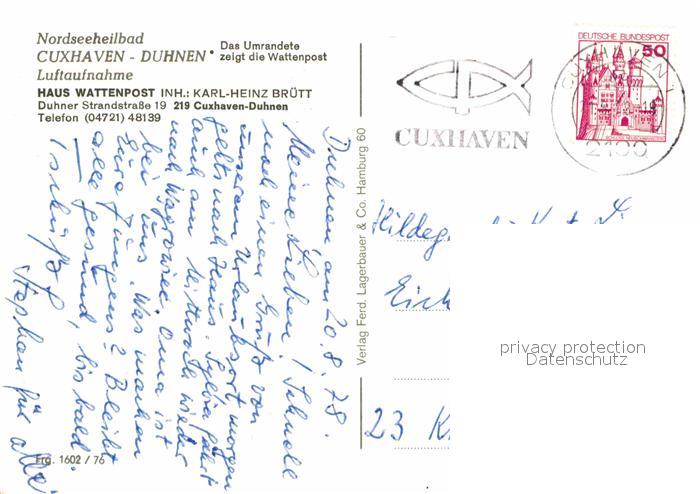 Nordseeheilbad
CUXHAVEN - DUHNEN*
Luftaufnahme
Das Umrandete
zeigt die Wattenpost
HAUS WATTENPOST INH.: KARL-HEINZ BRÜTT
Duhner Strandstraße 19 219 Cuxhaven-Duhnen
Telefon (04721) 48139
Duhnen am 20.8.78.
Meine Lieben! Schnell
noch einen Gruß von
unserem Urlaubsort, morgen
gehts nach Haus. Sylvia fährt
auch am Mittwoch wieder
nach Oma ist
bei uns. Was machen
Eure Jungens? Bleibt
alle gesund, bis bald
Tschüß!
Stephan für alle
Frg. 1602 / 76
Verlag Ferd. Lagerbauer & Co. Hamburg 60
CUXHAVEN
DEUTSCHE BUNDESPOST
50
CUXHAVEN 1
2190
Hildeg
Eich
23 K
privacy protection
Datenschutz